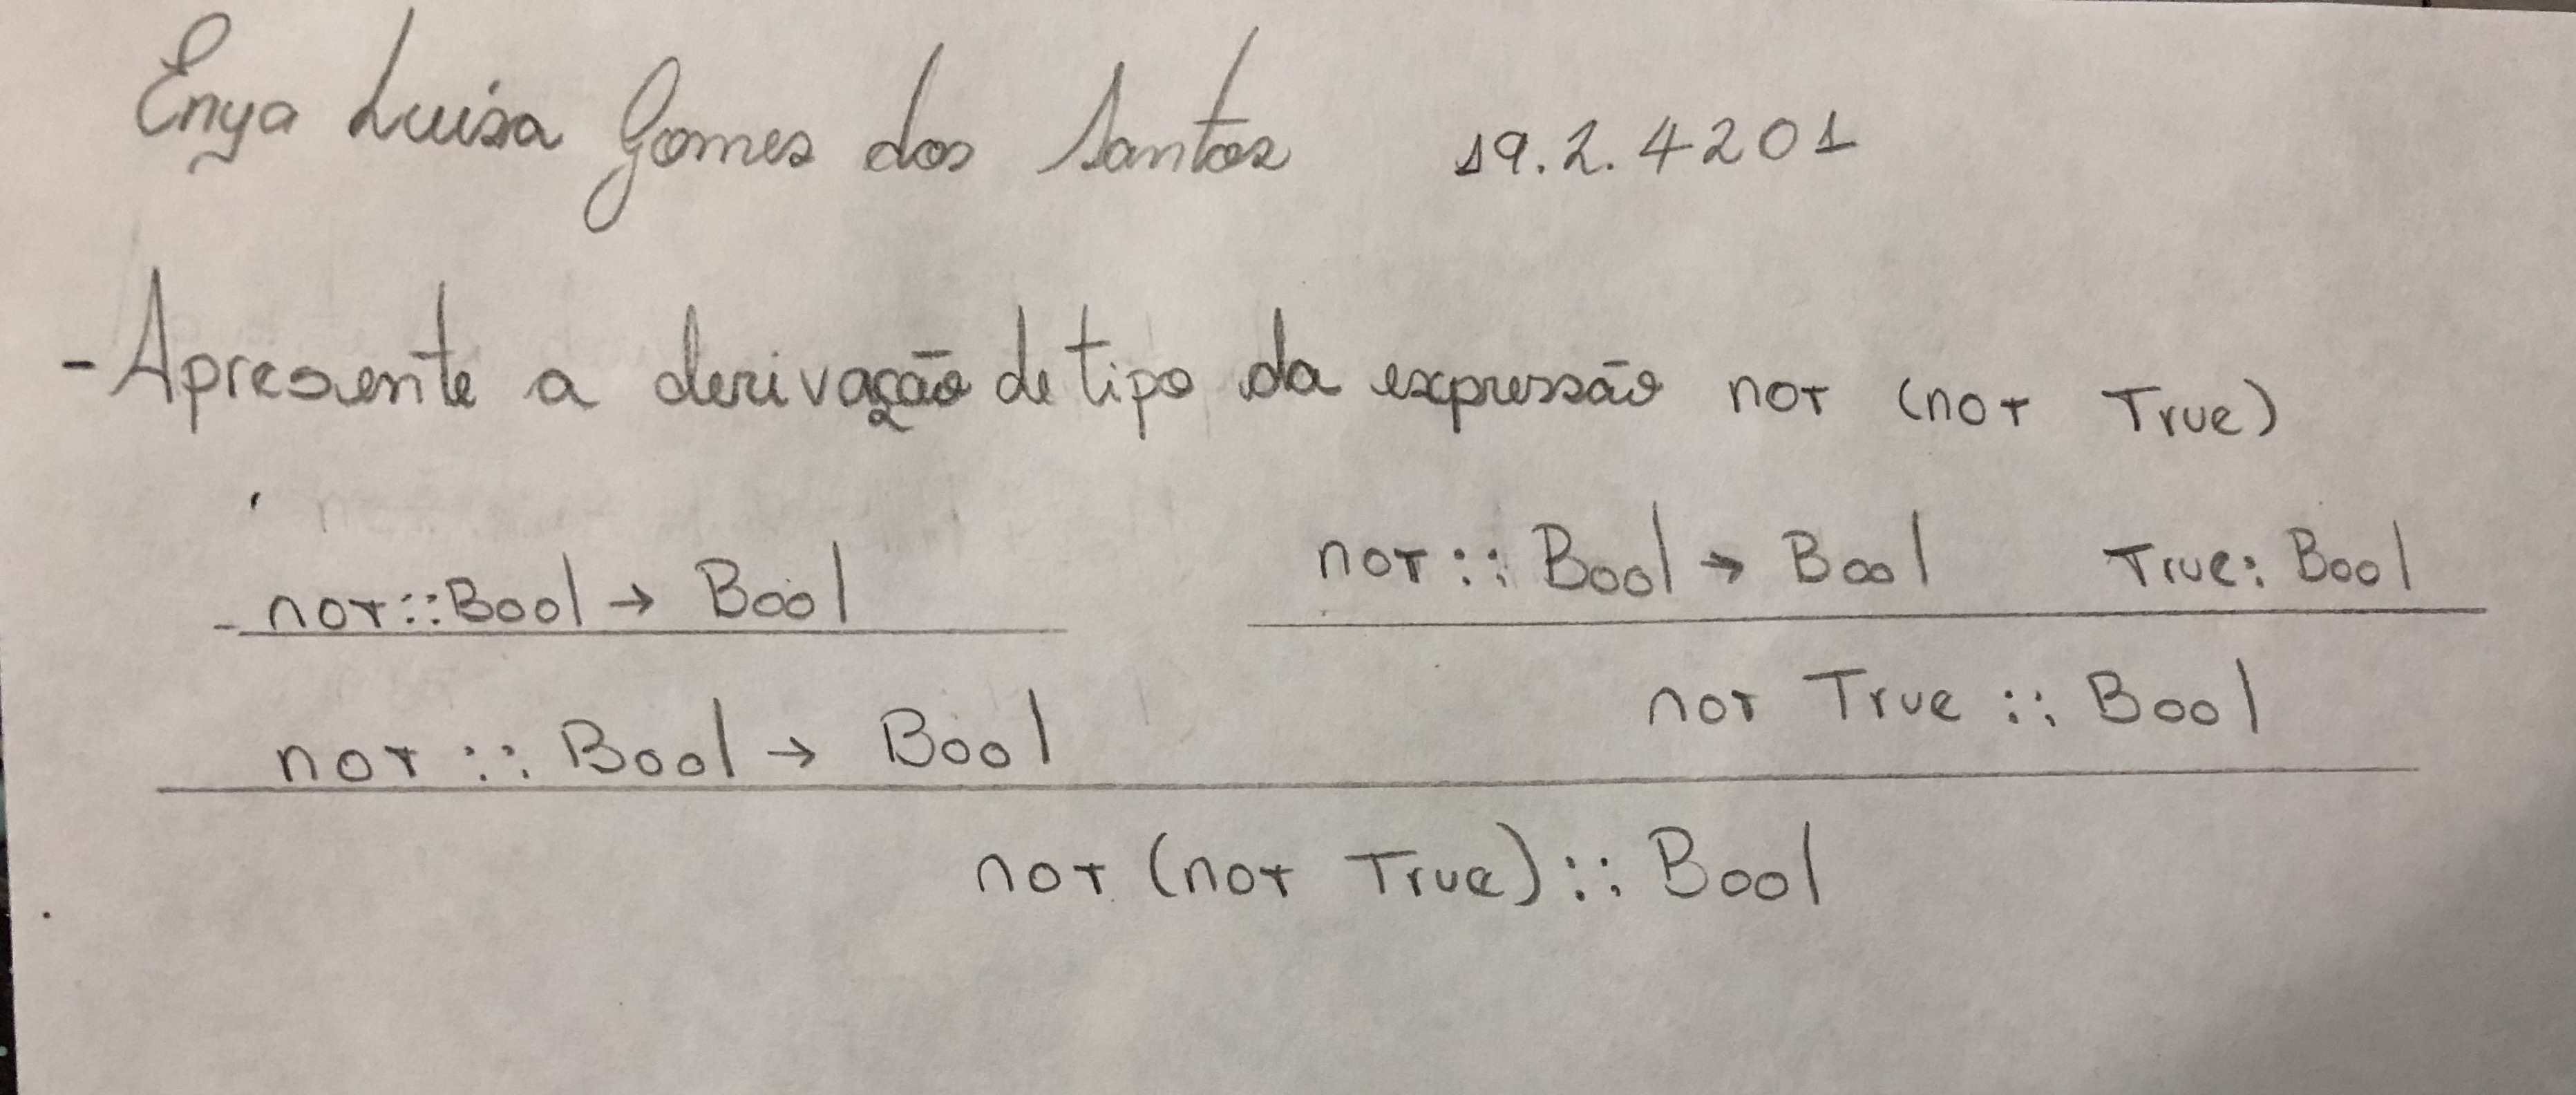 Enya Luisa Gomes dos Santos 19.2.4201
- Apresente a derivação de tipo da expressão not (not True)
not::Bool → Bool not :: Bool → Bool True: Bool
not :: Bool → Bool not True :: Bool
not (not True) :: Bool